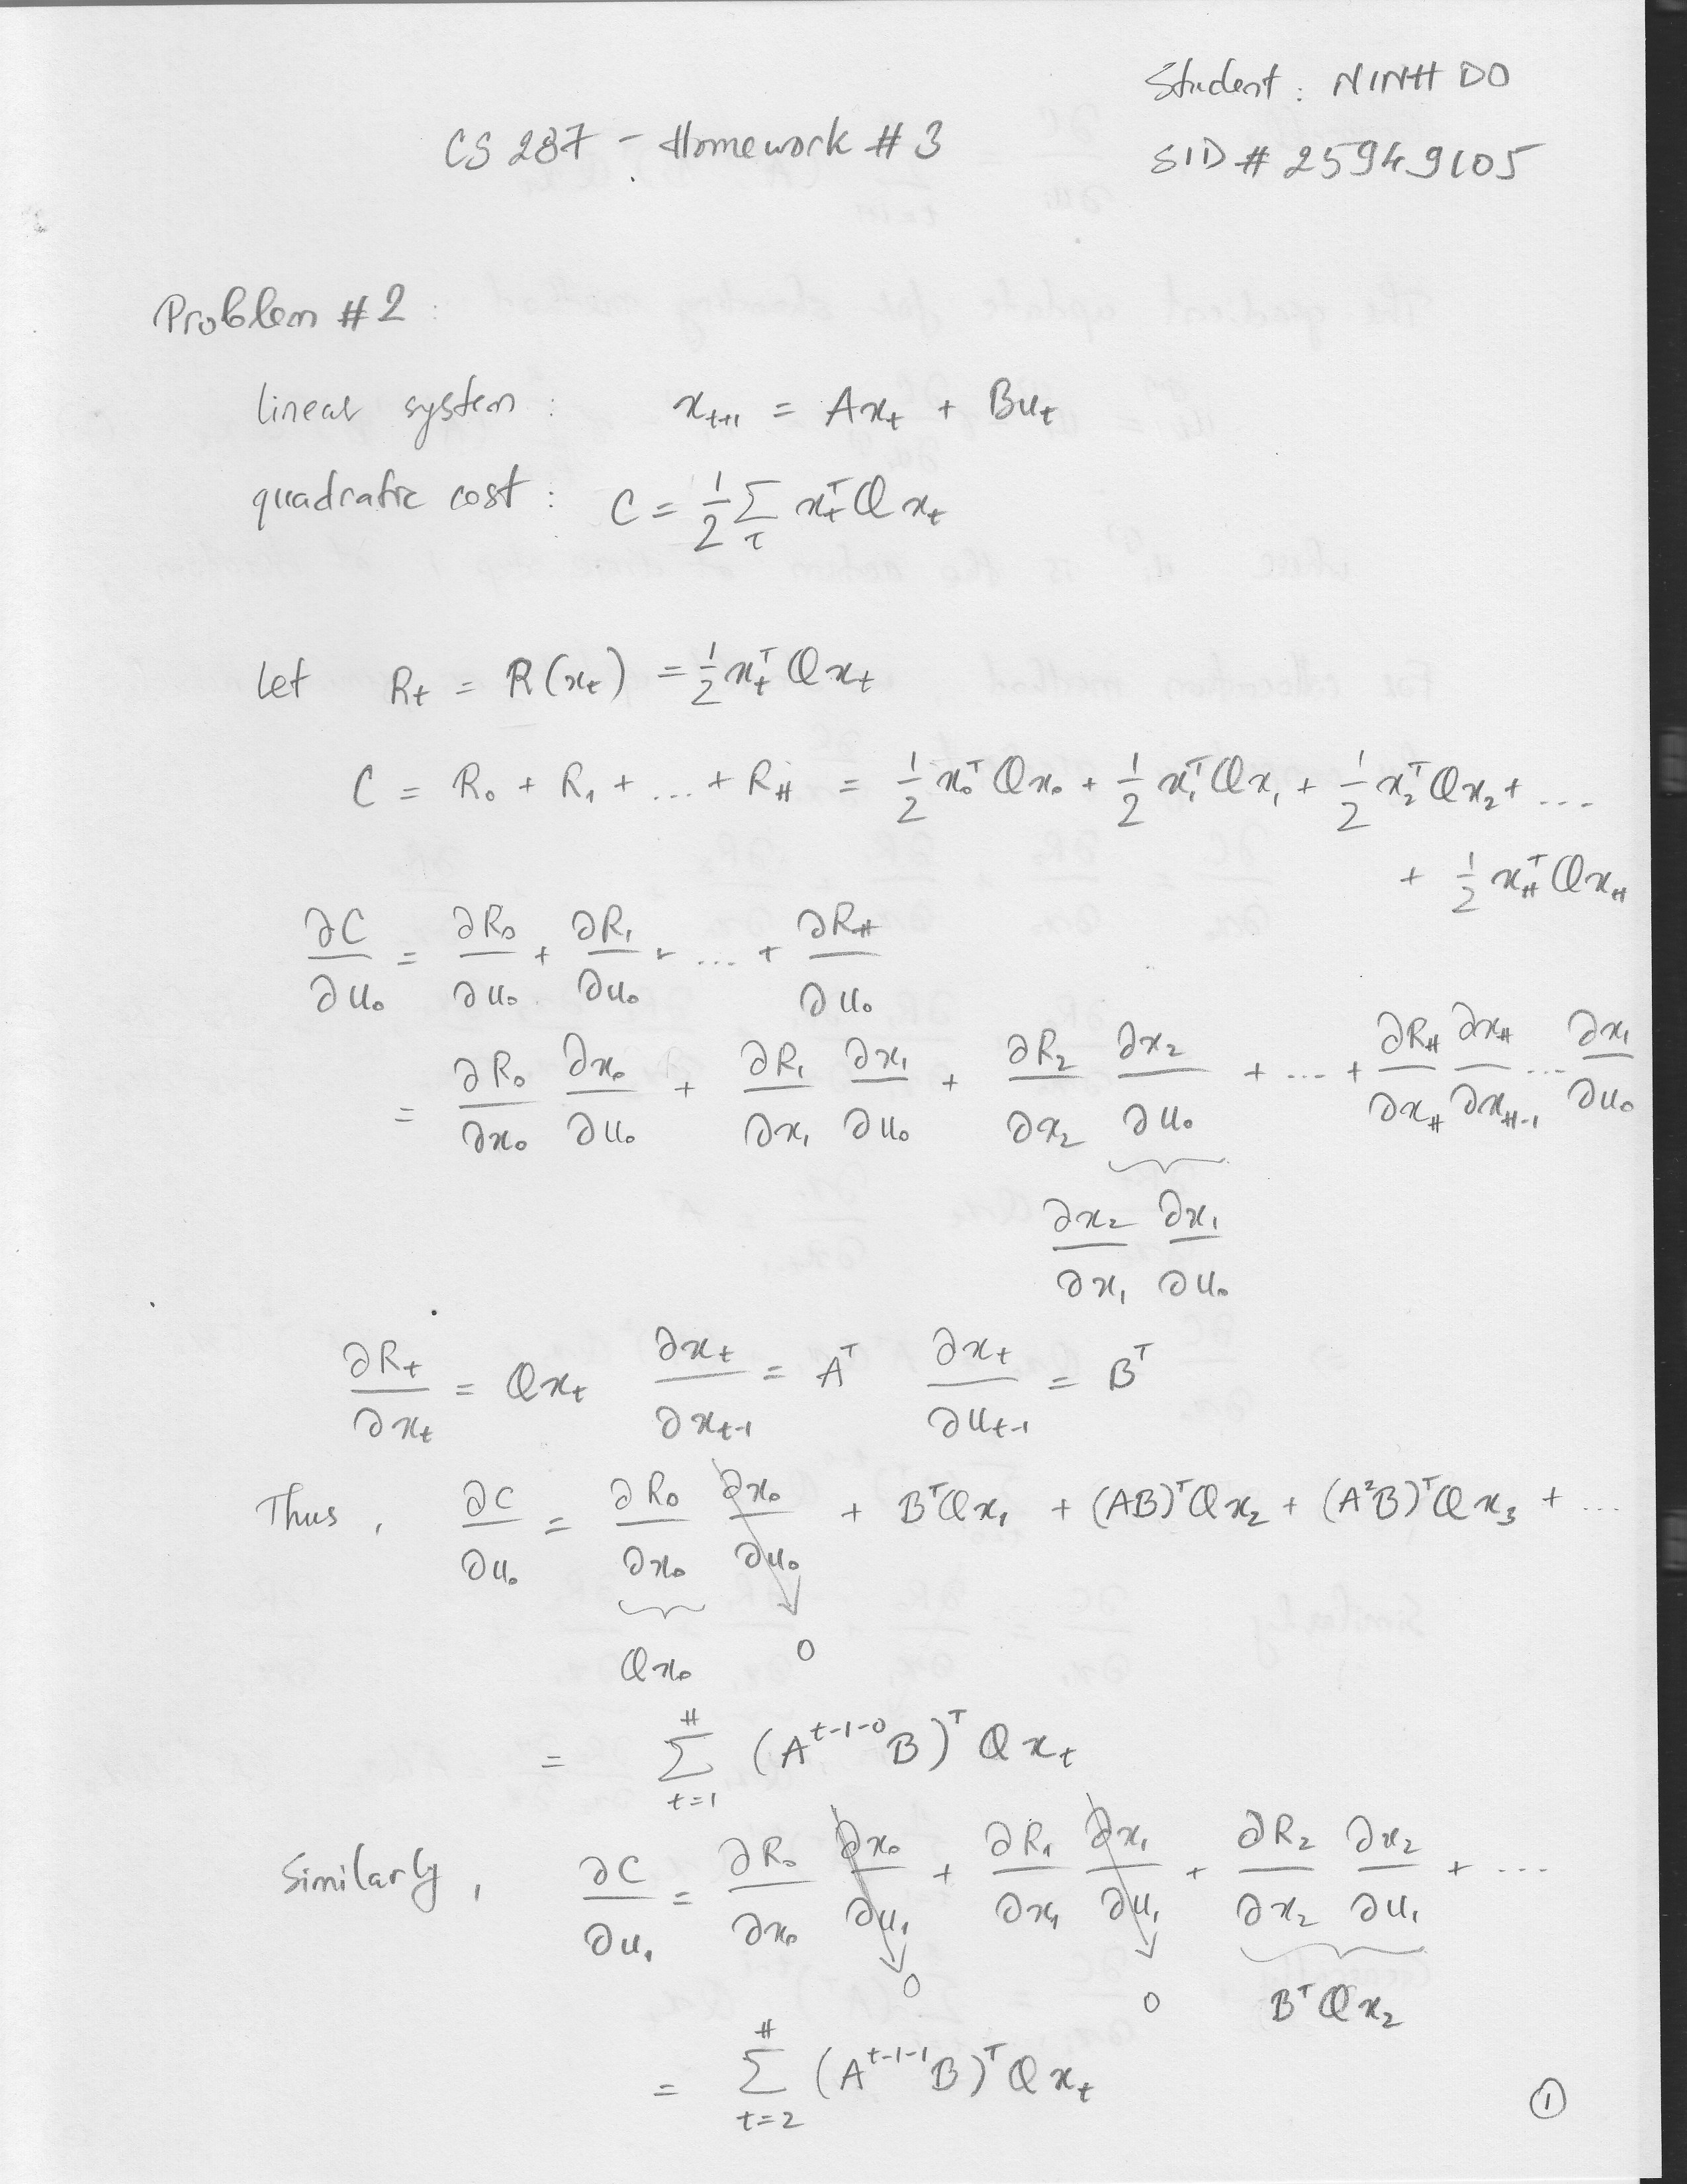 Student : NINH DO
CS 287 - Homework # 3
SID # 25949105
Problem # 2 :
linear system : x_{t+1} = Ax_t + Bu_t
quadratic cost : C = 1/2 Σ_τ x_t^T Q x_t
Let R_t = R(x_t) = 1/2 x_t^T Q x_t
C = R_0 + R_1 + ... + R_H = 1/2 x_0^T Q x_0 + 1/2 x_1^T Q x_1 + 1/2 x_2^T Q x_2 + ...
+ 1/2 x_H^T Q x_H
∂C/∂u_0 = ∂R_0/∂u_0 + ∂R_1/∂u_0 + ... + ∂R_H/∂u_0
= ∂R_0/∂x_0 ∂x_0/∂u_0 + ∂R_1/∂x_1 ∂x_1/∂u_0 + ∂R_2/∂x_2 ∂x_2/∂u_0 + ... + ∂R_H/∂x_H ∂x_H/∂x_{H-1} ... ∂x_1/∂u_0
∂x_2/∂x_1 ∂x_1/∂u_0
∂R_t/∂x_t = Qx_t ∂x_t/∂x_{t-1} = A^T ∂x_t/∂u_{t-1} = B^T
Thus , ∂C/∂u_0 = ∂R_0/∂x_0 ∂x_0/∂u_0 + B^T Q x_1 + (AB)^T Q x_2 + (A^2 B)^T Q x_3 + ...
Qx_0 0
= Σ_{t=1}^{H} (A^{t-1-0} B)^T Q x_t
Similarly , ∂C/∂u_1 = ∂R_0/∂x_0 ∂x_0/∂u_1 + ∂R_1/∂x_1 ∂x_1/∂u_1 + ∂R_2/∂x_2 ∂x_2/∂u_1 + ...
0 0 B^T Q x_2
= Σ_{t=2}^{H} (A^{t-1-1} B)^T Q x_t
①